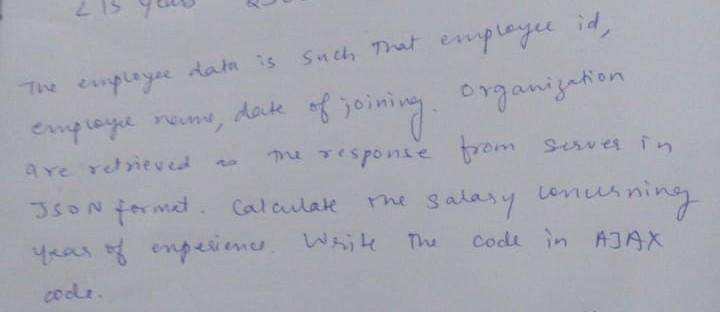 < 15 years
The employee data is such that employee id,
employee name, date of joining. Organization
are retrieved as the response from server in
JSON format. Calculate the salary concerning
year of experience. Write the code in AJAX
code.